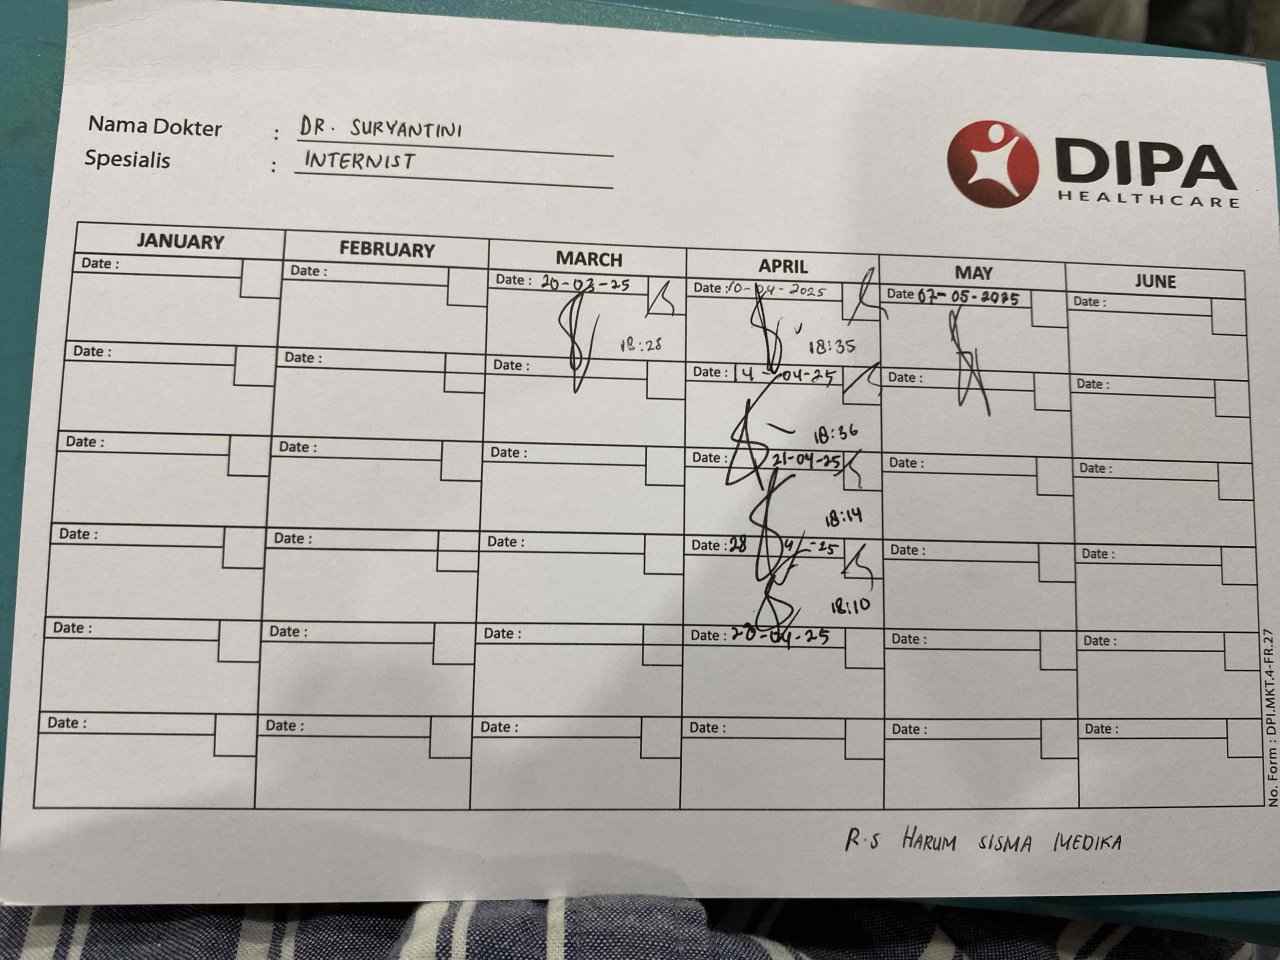 Nama Dokter : DR. SURYANTINI
Spesialis : INTERNIST
DIPA
HEALTHCARE
JANUARY FEBRUARY MARCH APRIL MAY JUNE
Date : Date : Date : 20-03-25 Date : 10-04-2025 Date 07-05-2025 Date :
18:28 18:35
Date : Date : Date : Date : 14-04-25 Date : Date :
18:36
Date : Date : Date : Date : 21-04-25 Date : Date :
18:14
Date : Date : Date : Date : 28 4 -25 Date : Date :
18:10
Date : Date : Date : Date : 20-04-25 Date : Date :
Date : Date : Date : Date : Date : Date :
R.S HARUM SISMA MEDIKA
No. Form : DPI.MKT.4-FR.27